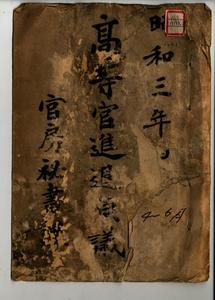 昭和三年
高等官進退内議
官房秘書課
4-6A